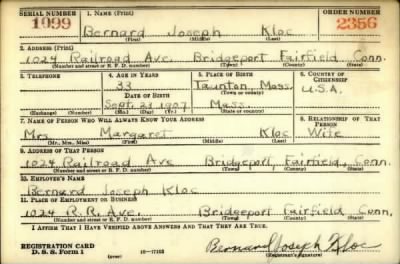 SERIAL NUMBER 1. NAME (Print) ORDER NUMBER
1099 Bernard Joseph Kloc 2356
(First) (Middle) (Last)
2. ADDRESS (Print)
1024 Railroad Ave. Bridgeport Fairfield Conn.
(Number and street or R. F. D. number) (Town) (County) (State)
3. TELEPHONE 4. AGE IN YEARS 5. PLACE OF BIRTH 6. COUNTRY OF CITIZENSHIP
33 Taunton, Mass. U.S.A.
DATE OF BIRTH (Town or county)
Sept. 21 1907 Mass.
(Exchange) (Number) (Mo.) (Day) (Yr.) (State or country)
7. NAME OF PERSON WHO WILL ALWAYS KNOW YOUR ADDRESS 8. RELATIONSHIP OF THAT PERSON
Mrs Margaret Kloc Wife
(Mr., Mrs., Miss) (First) (Middle) (Last)
9. ADDRESS OF THAT PERSON
1024 Railroad Ave Bridgeport, Fairfield, Conn.
(Number and street or R. F. D. number) (Town) (County) (State)
10. EMPLOYER'S NAME
Bernard Joseph Kloc
11. PLACE OF EMPLOYMENT OR BUSINESS
1024 R.R. Ave. Bridgeport Fairfield Conn.
(Number and street or R. F. D. number) (Town) (County) (State)
I AFFIRM THAT I HAVE VERIFIED ABOVE ANSWERS AND THAT THEY ARE TRUE.
REGISTRATION CARD
D. S. S. Form 1 (over) 16—17105 Bernard Joseph Kloc
(Registrant's signature)